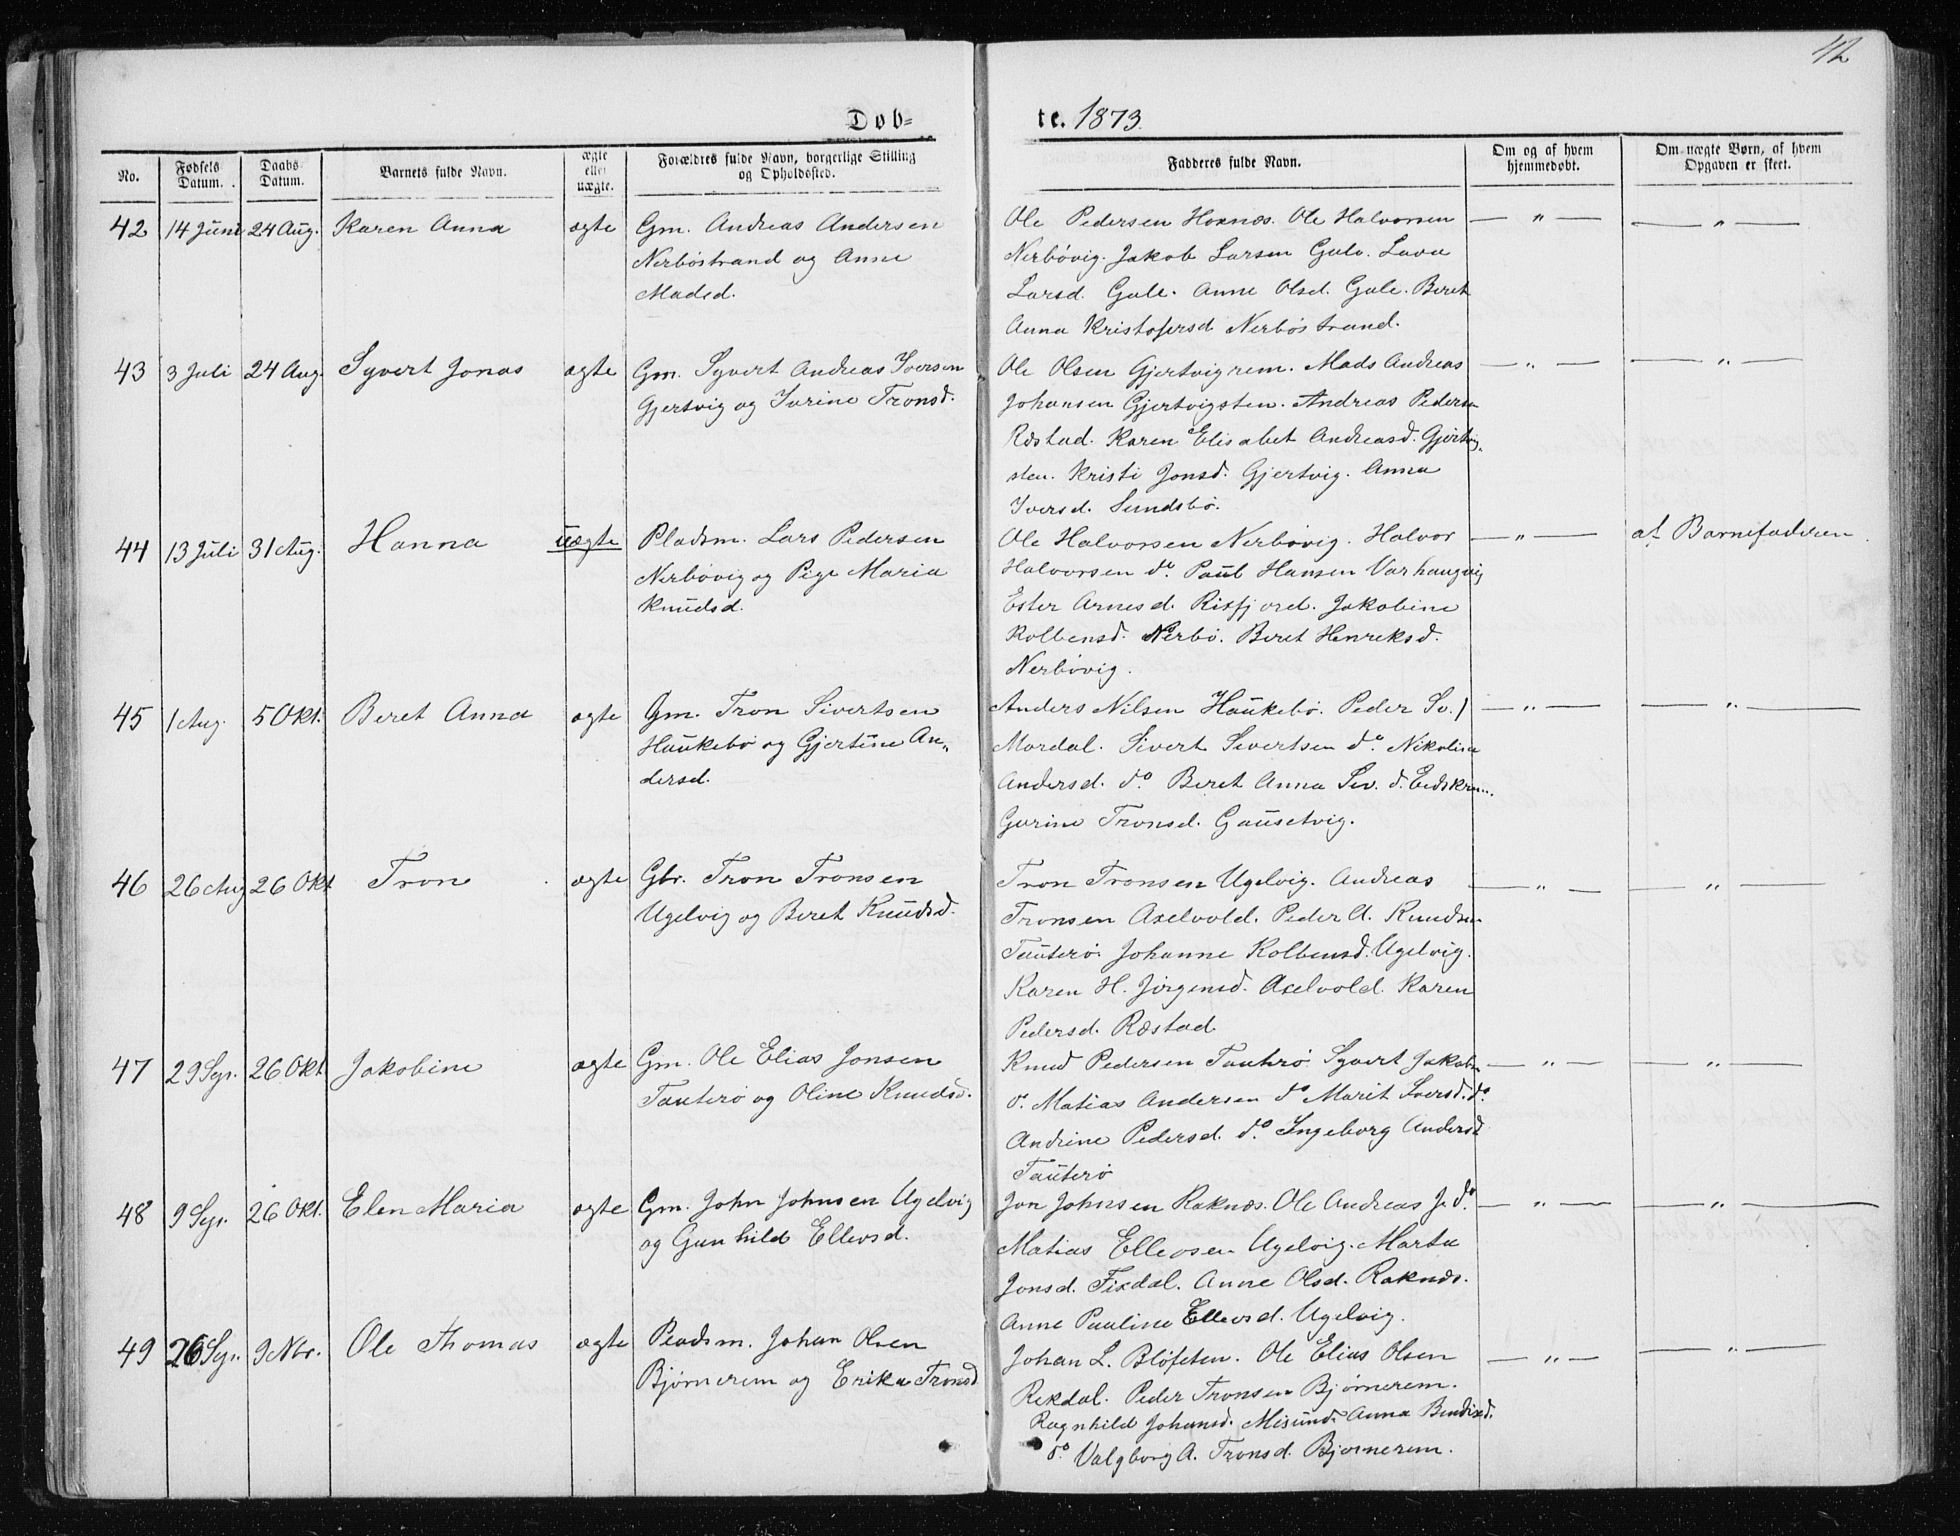 42
Døb=
te. 1873.
No.
Fødsels Datum.
Daabs-Datum.
Barnets fulde Navn.
ægte eller uægte.
Forældres fulde Navn, borgerlige Stilling og Opholdssted.
Fadderes fulde Navn.
Om og af hvem hjemmedøbt.
Om uægte Børn, af hvem Opgaven er skeet.
42 14 Juni 24 Aug. Karen Anna ægte Gm. Andreas Andersen
Nerbøstrand og Anne
Madsd.
Ole Pedersen Hoxnæs. Ole Halvorsen — " — — " —
Nerbøvig. Jakob Larsen Gule. Lava
Larsd. Gule. Anne Olsd. Gule. Beret
Anna Kristofersd. Nerbøstrand.
43 3 Juli 24 Aug. Syvert Jonas ægte Gm. Syvert Andreas Iversen
Gjertvig og Iverine Tronsd.
Ole Olsen Gjertvigrem. Mads Andreas — " — — " —
Johansen Gjertvigsten. Andreas Pedersen
Ræstad. Karen Elisabet Andreasd. Gjertvig-
sten. Kristi Jonsd. Gjertvig. Anna
Iversd. Sundsbø.
44 13 Juli 31 Aug. Hanna uægte Pladsm. Lars Pedersen
Nerbøvig og Pige Maria
Knudsd.
Ole Halvorsen Nerbøvig. Halvor — " — af Barnefaderen.
Halvorsen do. Paul Hansen Varhaugvig
Ester Arnesd. Rixfjord. Jakobine
Kolbensd. Nerbø. Beret Henriksd.
Nerbøvig.
45 1 Aug. 5 Okt. Beret Anna ægte Gm. Tron Sivertsen
Haukebø og Gjertine An-
dersd.
Anders Nilsen Haukebø. Peder Sv. — " — — " —
Mordal. Sivert Sivertsen do. Nikoline
Andersd. do. Beret Anna Siv. d. Eidskrem.
Gurine Tronsd. Gausetvig.
46 26 Aug 26 Okt. Tron ægte Gbr. Tron Tronsen
Ugelvig og Beret Knudsd.
Tron Tronsen Ugelvig. Andreas — " — — " —
Tronsen Axelvold. Peder A. Knudsen
Tauterø. Johanne Kolbensd. Ugelvig.
Karen H. Jørgensd. Axelvold. Karen
Pedersd. Ræstad.
47 29 Sep. 26 Okt. Jakobine ægte Gm. Ole Elias Jonsen
Tauterø og Oline Knudsd.
Knud Pedersen Tauterø. Syvert Jakobs. — " — — " —
do. Matias Andersen do. Marit Iversd. do.
Andrine Pedersd. do. Ingeborg Andersd.
Tauterø
48 9 Sep. 26 Okt. Elen Maria ægte Gm. John Johnsen Ugelvig
og Gunhild Ellevsd.
Jon Johnsen Raknæs. Ole Andreas J. do. — " — — " —
Matias Ellevsen Ugelvig. Marta
Jonsd. Fixdal. Anne Olsd. Raknæs.
Anne Pauline Ellevsd. Ugelvig.
49 26 Sep. 9 Nbr. Ole Thomas ægte Pladsm. Johan Olsen
Bjørnerem og Erika Tronsd.
Johan L. Bløfeten. Ole Elias Olsen — " — — " —
Rekdal. Peder Tronsen Bjørnerem.
Ragnhild Johansd. Misund. Anna Bendixd.
do. Valgborg A. Tronsd. Bjørnerem.